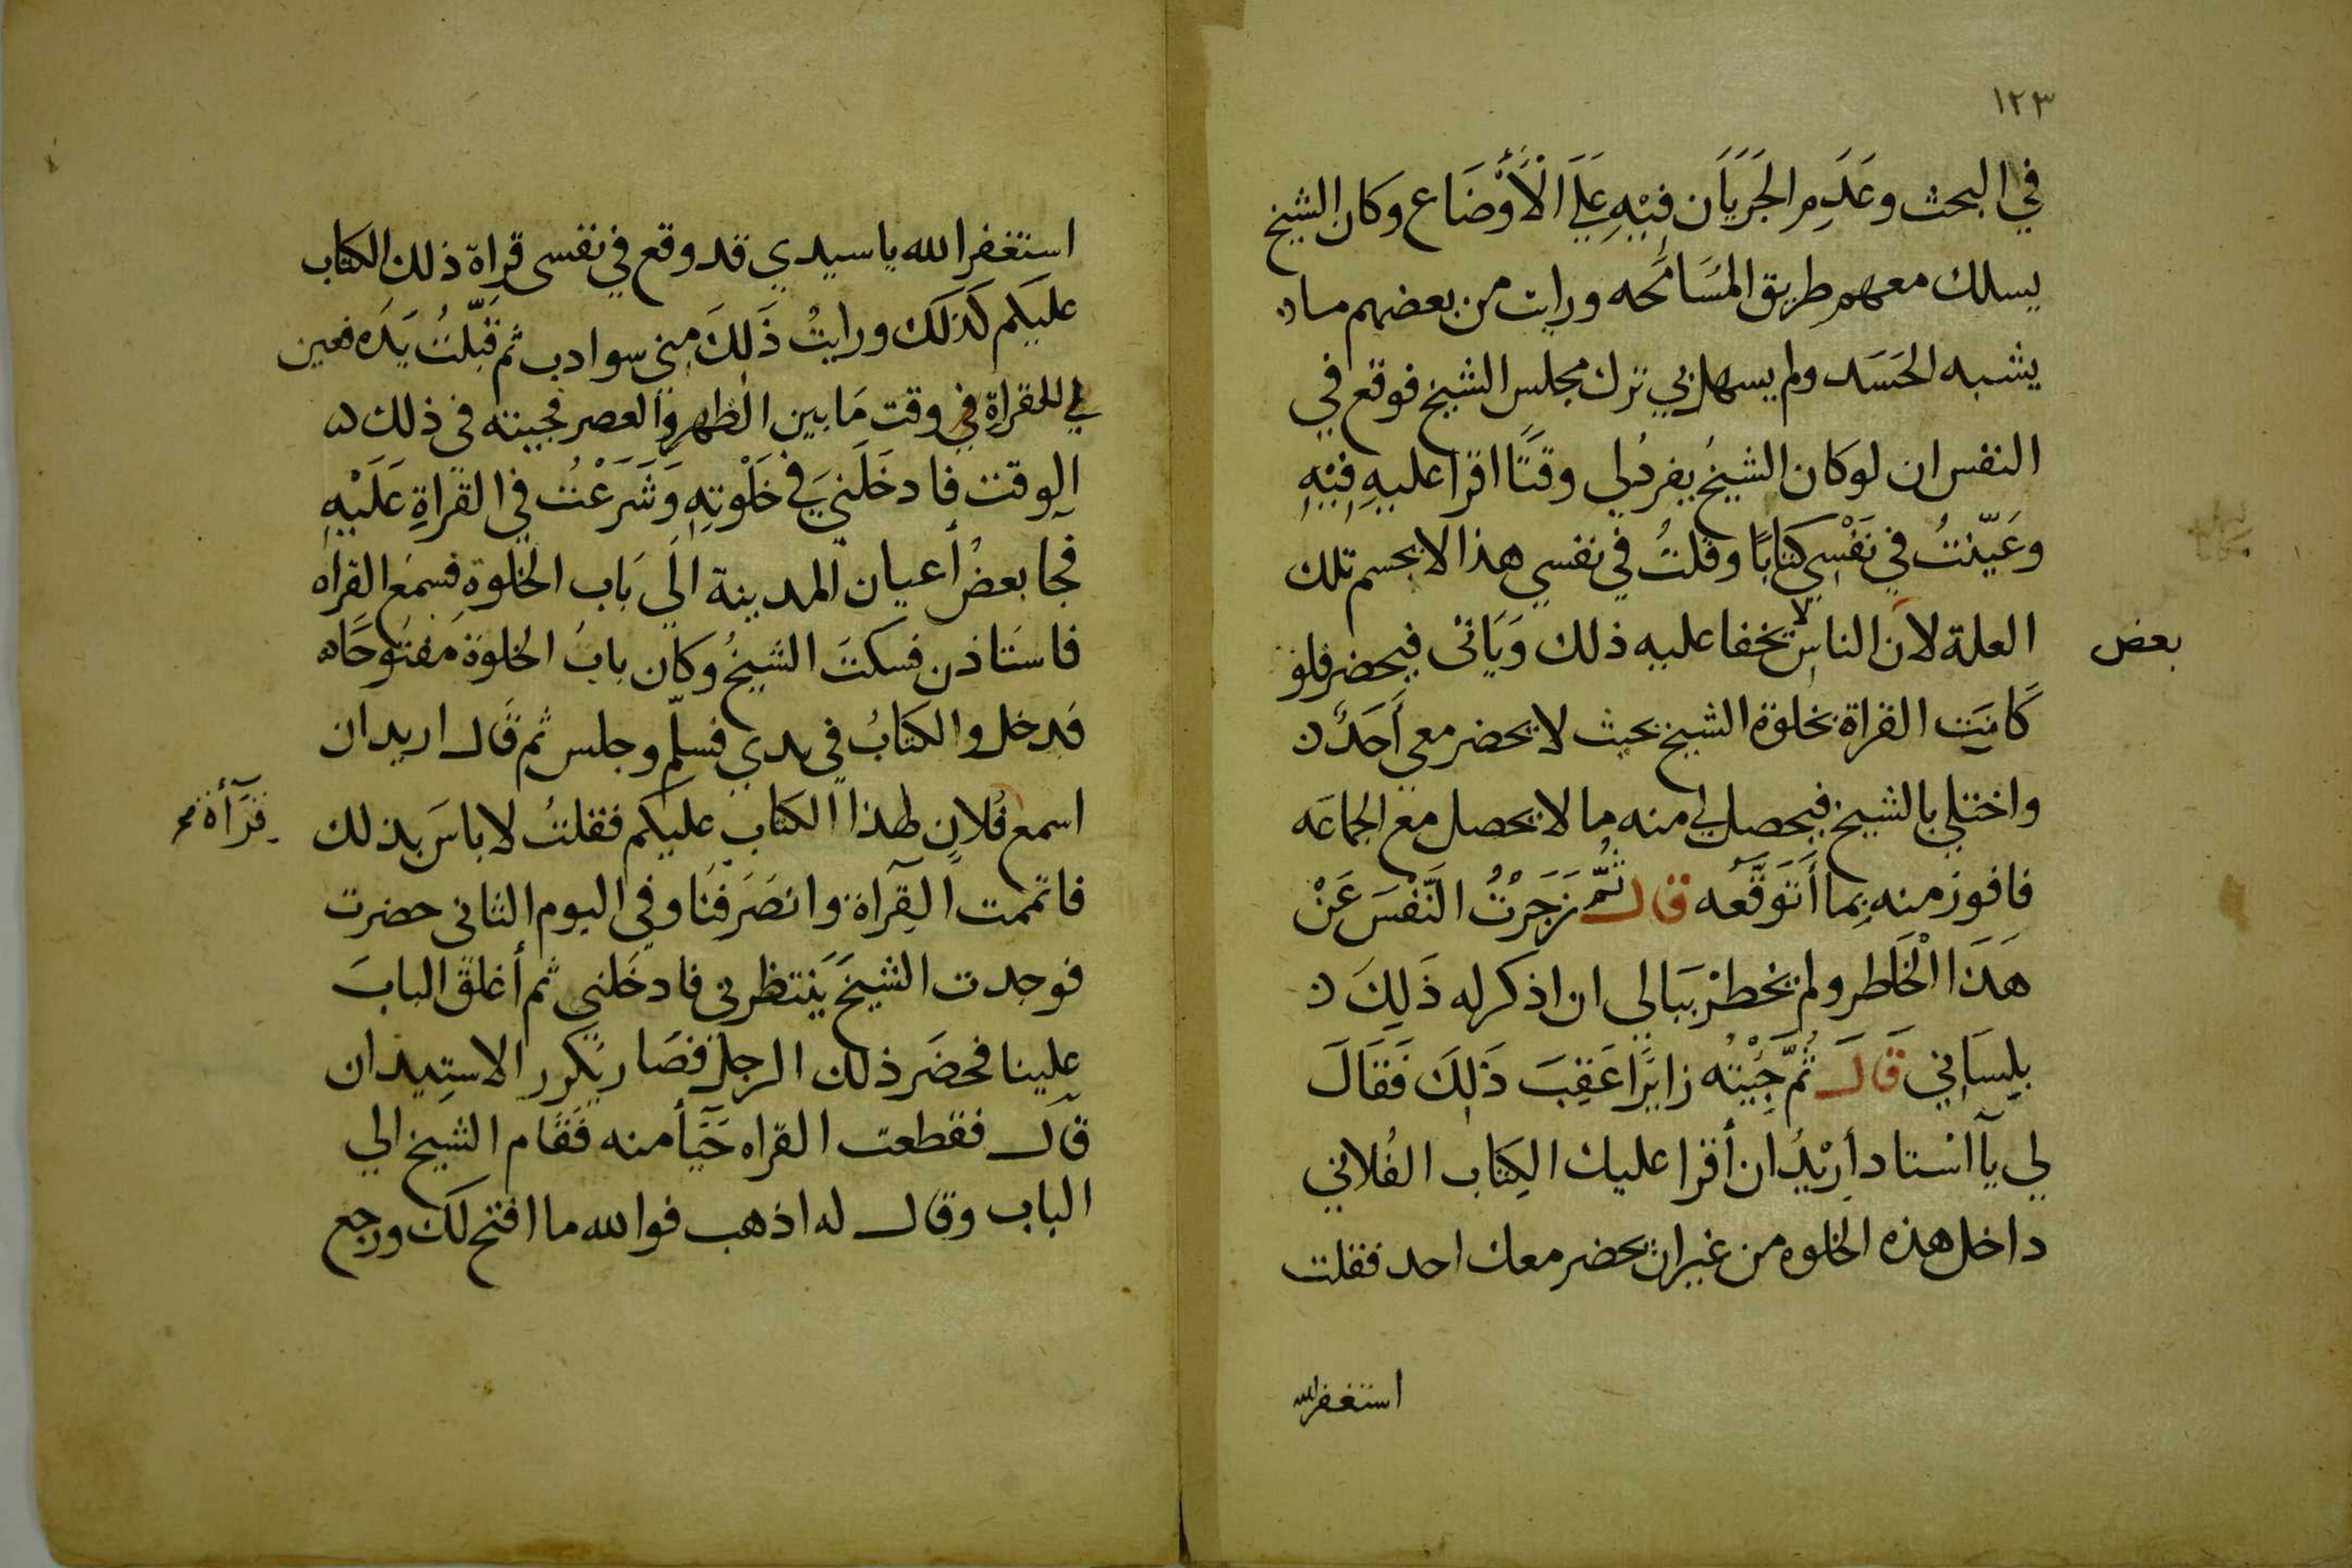 ١٢٣
في البحث وعَدَمِ الجَرَيَان فِيْهِ عَلَى الْأَوْضَاع وكان الشيخ
يسلك معهم طريق المُسَامَحه ورايت من بعضهم ما
يشبه الحَسَد ولم يسهل بي ترك مجلس الشيخ فوقع في
النفس ان لو كان الشيخُ يفردُ لي وقتًا اقرا عليهِ فِيْهِ
وعَيّنتُ في نَفْسِي كتابًا وقلتُ في نفسي هذا لا يحسم تلك
العلة لان بعض الناس لا يخفا عليه ذلك وَيَاتى فيحضر فلو
كَانَت القراة بخلوة الشيخ بحيث لا يحضر معى أَحَدٌ
واختلي بالشيخ فيحصل لي منه ما لا يحصل مع الجماعَه
فافوز منه بِما أَتَوَقَّعُه قال ثُمّ زَجَرْتُ النَّفْسَ عَنْ
هَذَا الْخَاطر ولم يخطرْ ببَالى ان اذكر له ذَلِكَ
بِلِسَانِي قَالَ ثُمَّ جِئْتُه زايرًا عَقِبَ ذَلِكَ فَقَالَ
لي يآ استاد أرِيْدُ ان أقرا عليك الكِتَاب الفُلاني
داخل هذه الخلوه من غير ان يحضر معك احد فقلت
استغفر الله
استغفر الله يا سيدي قد وقع في نفسى قراة ذلك الكتاب
عليكم كَذلكَ ورايتُ ذَلِكَ مِني سو ادب ثم قَبّلتُ يَدَه فعين
لي للقراةِ في وقت مَا بين الظهر والعصر فجيته فى ذلك
الوقت فادخَلَنيَ في خَلْوتِهِ وَشَرَعْتُ في القَراةِ عَلَيْهِ
فجا بعضُ أعيان المدينة الَي بَاب الخلوةِ فسمَع القراه
فاستَاذن فسكتَ الشيخُ وكان بابُ الخلوة مَفتوحًا
فدخل والكتابُ في يدي فسلّم وجلس ثم قال اريد ان
اسمع قرأة فُلانٍ لهذا الكتابِ عليكم فقلتُ لا باسَ بذلك
فاتممت القرآة وانصَرفنَا وفي اليوم الثانى حضرت
فوجدت الشيخَ يَنتظرني فادخَلني ثم أغلقَ البابَ
علينا فحضَر ذلك الرجل فصَار يكرر الاستيدان
قال فقطعت القراه حَيَأ منه فَقَام الشيخ الي
الباب وقال له اذهب فوالله ما افتح لكَ ورجع